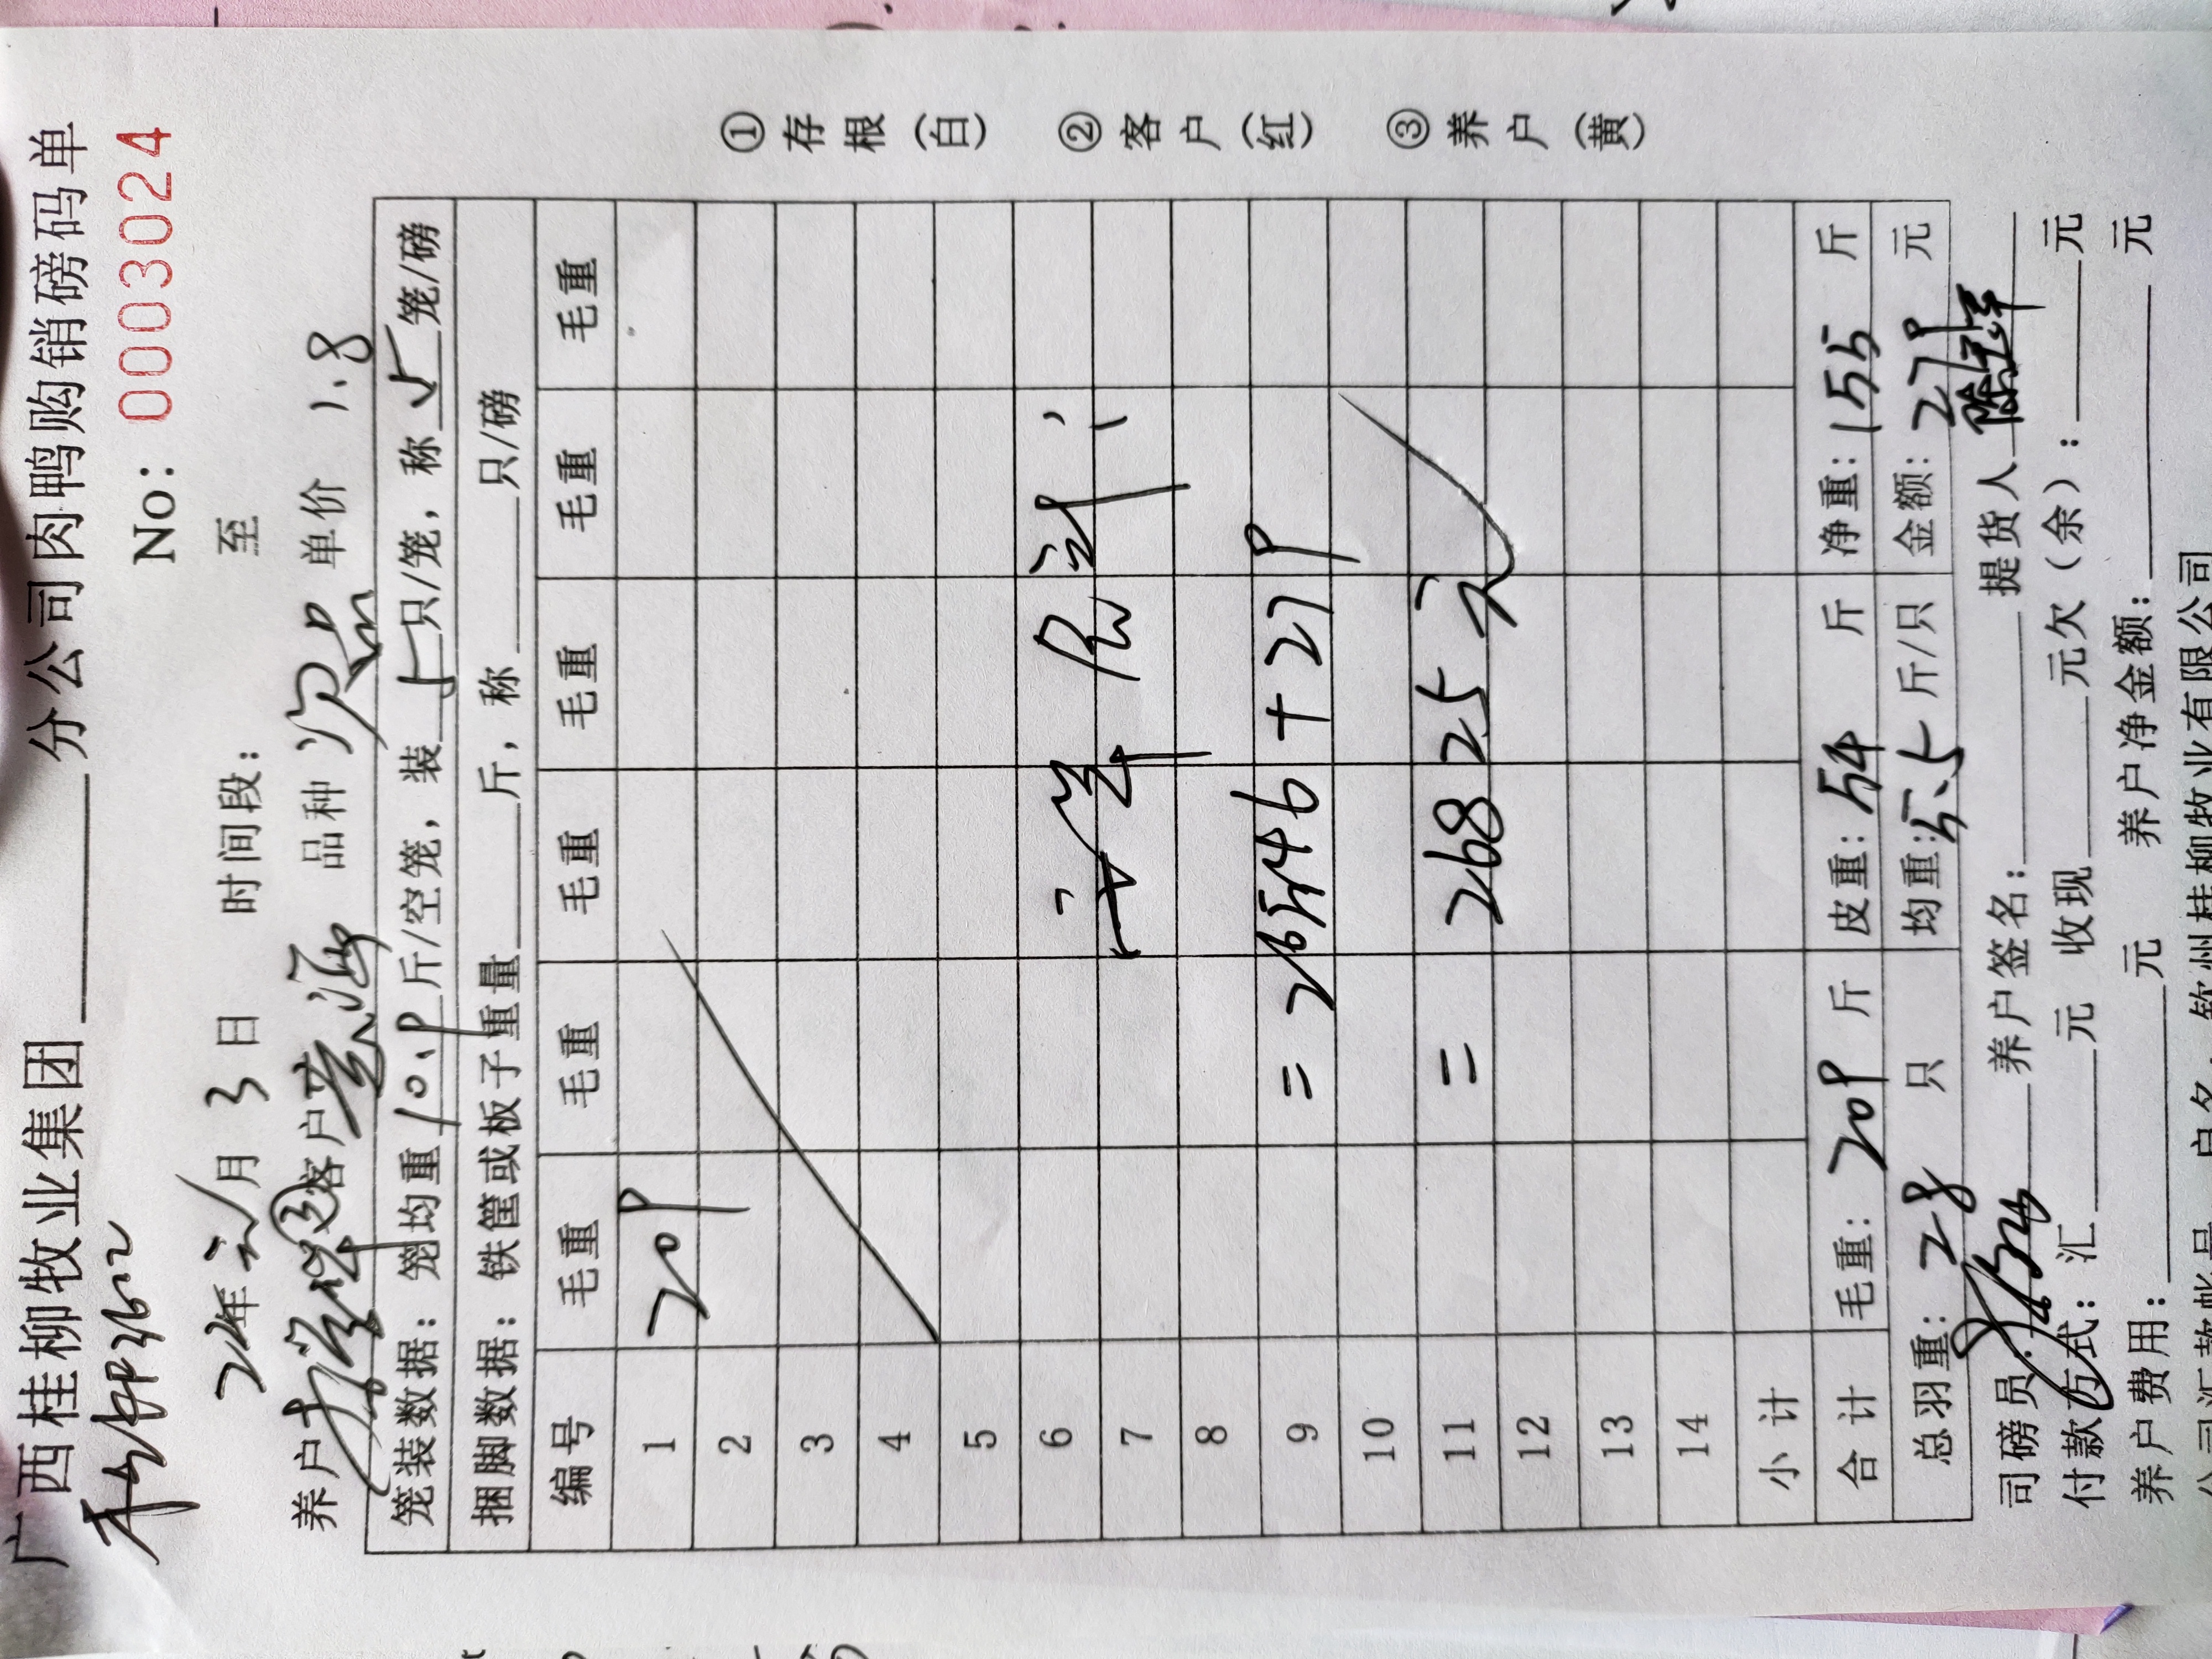 广西桂柳牧业集团______分公司肉鸭购销磅码单
No: 0003024
24年 月3日 时间段: 至
养户 客户 品种 次品 单价 1.8
笼装数据: 笼均重10.9斤/空笼, 装5只/笼, 称5笼/磅
捆脚数据: 铁筐或板子重量____斤, 称____只/磅
编号 毛重 毛重 毛重 毛重 毛重 毛重
1 209
2
3
4
5
6
7
8
9 = 26546 + 279
10
11 = 26825元
12
13
14
小计
合计 毛重: 209 斤 皮重: 54 斤 净重: 155 斤
总羽重: 28 只 均重: 5.5 斤/只 金额: 279 元
司磅员: 养户签名: 提货人
付款方式: 汇____元 收现____元欠(余): ____元
养户费用: ____元 养户净金额: ____元
①存根(白) ②客户(红) ③养户(黄)